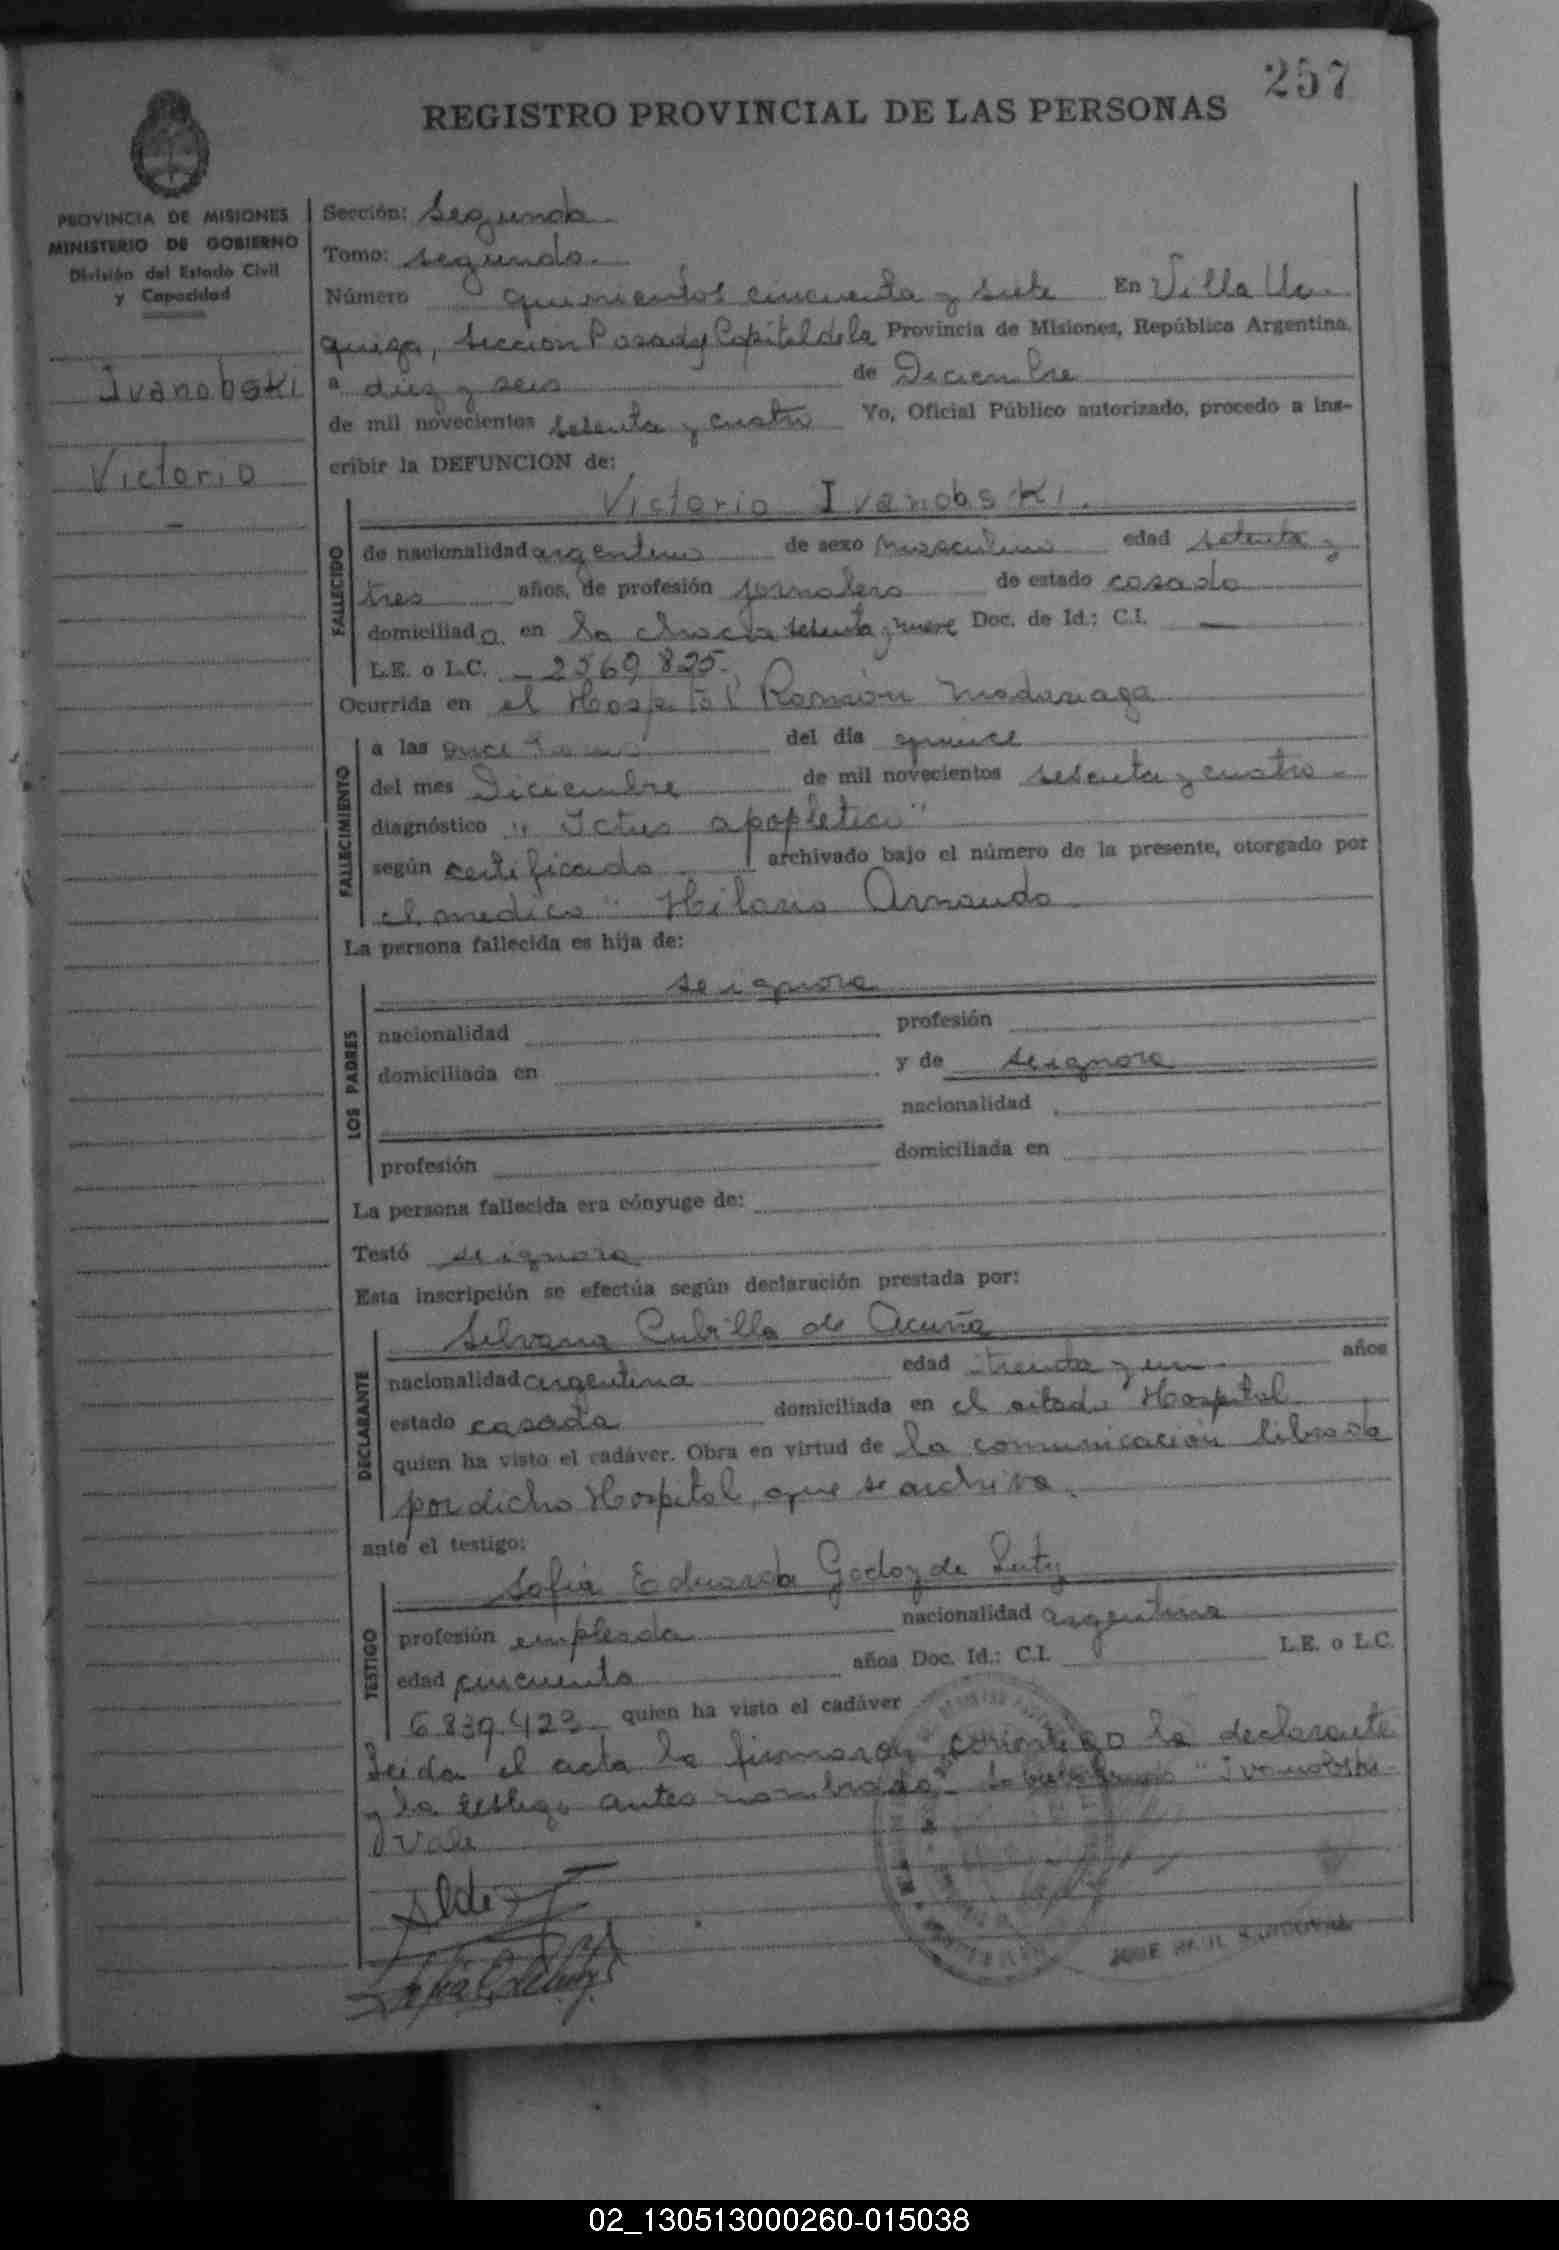 257
REGISTRO PROVINCIAL DE LAS PERSONAS
PROVINCIA DE MISIONES
MINISTERIO DE GOBIERNO
División del Estado Civil
y Capacidad
Ivanobski
Victorio
Sección: Segunda
Tomo: segundo
Número quinientos cincuenta y siete En Villa Ur-
quiza, sección Posadas Capital de la Provincia de Misiones, República Argentina,
a diez y seis de Diciembre
de mil novecientos setenta y cuatro Yo, Oficial Público autorizado, procedo a ins-
cribir la DEFUNCION de:
Victorio Ivanobski.
FALLECIDO
de nacionalidad argentino de sexo masculino edad setenta y
tres años, de profesión jornalero de estado casado
domiciliado en la chacra setenta y nueve Doc. de Id.: C.I. —
L.E. o L.C. - 2569825.
Ocurrida en el Hospital Ramón Madariaga
FALLECIMIENTO
a las once horas del día quince
del mes Diciembre de mil novecientos setenta y cuatro -
diagnóstico "Ictus apopletico"
según certificado archivado bajo el número de la presente, otorgado por
el medico " Hilario Arnando
La persona fallecida es hija de:
LOS PADRES
se ignora
nacionalidad profesión
domiciliada en y de se ignora
nacionalidad
profesión domiciliada en
La persona fallecida era cónyuge de:
Testó se ignora
Esta inscripción se efectúa según declaración prestada por:
DECLARANTE
Silvana Cubilla de Acuña
nacionalidad argentina edad treinta y un años
estado casada domiciliada en el citado Hospital
quien ha visto el cadáver. Obra en virtud de la comunicación librada
por dicho Hospital, que se archiva.
ante el testigo:
TESTIGO
Sofia Eduarda Godoy de
profesión empleada nacionalidad argentina
edad cincuenta años Doc. Id.: C.I. L.E. o L.C.
6.839.423 quien ha visto el cadáver
Leida el acta la firmaron conmigo la declarante
y la testigo antes nombrada - "Ivanobski" -
Vale
JOSE RAUL SANDOVAL
02_130513000260-015038